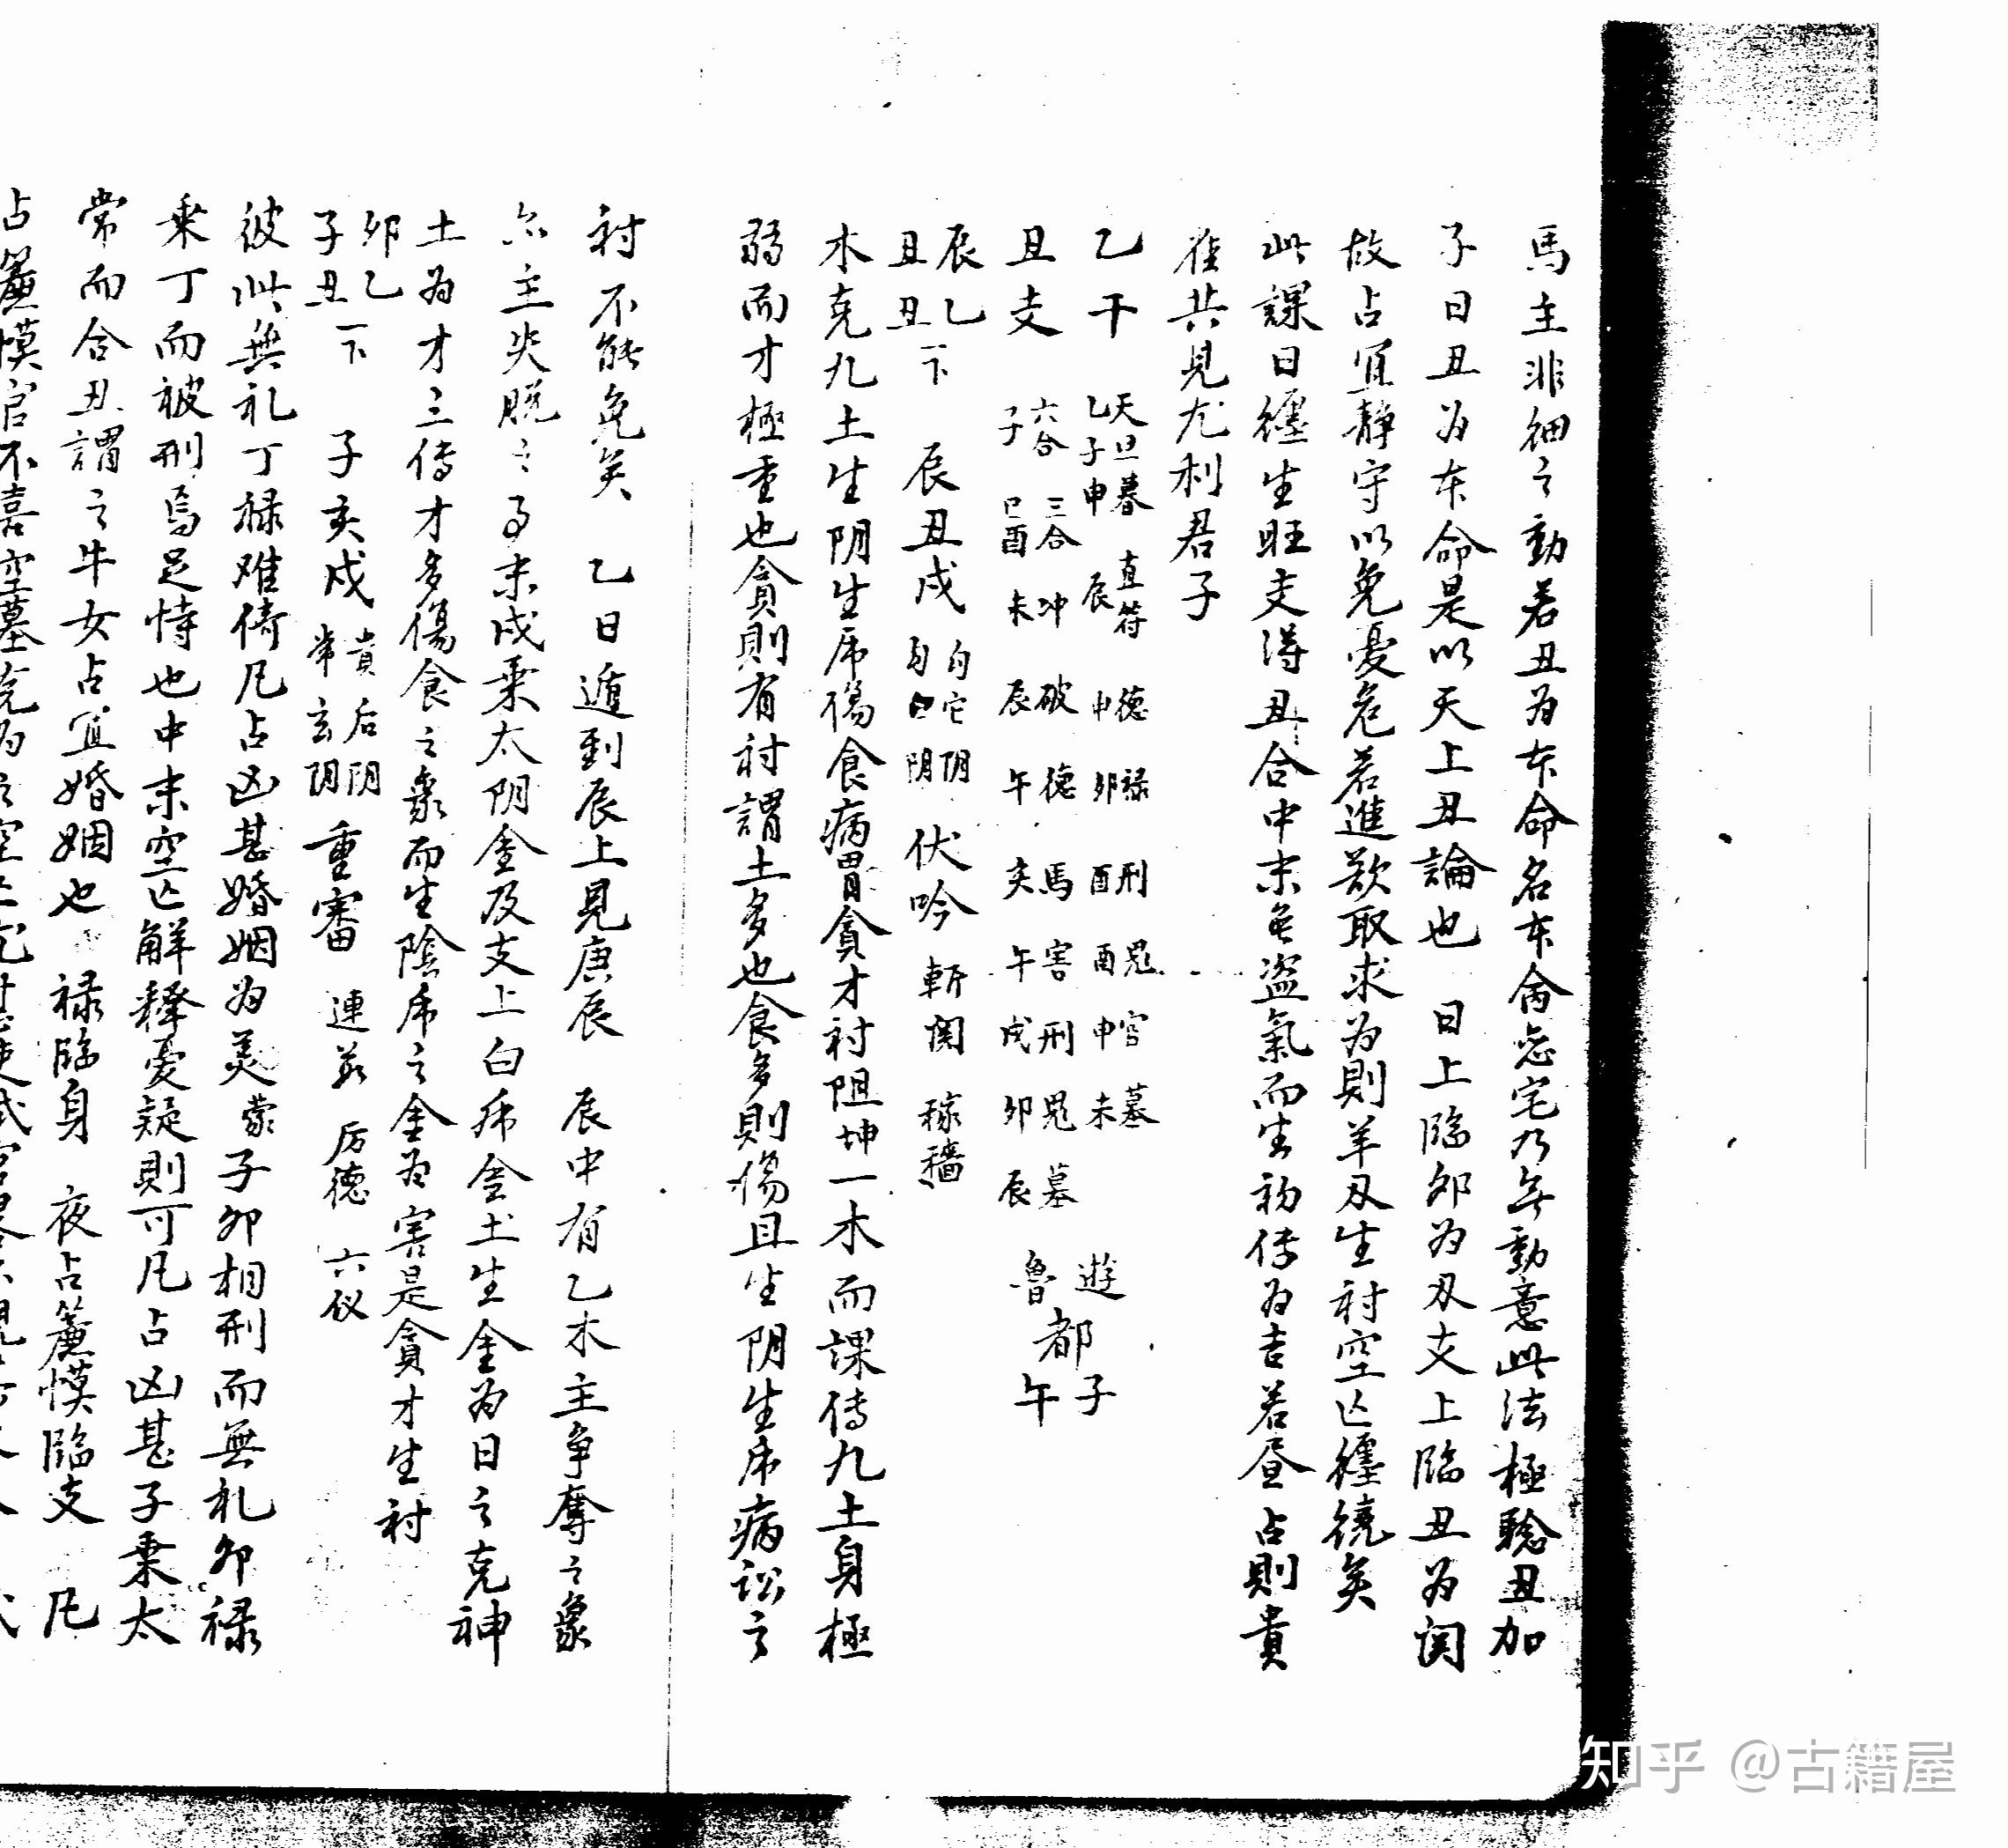 馬主非細之動若丑为本命名本命忌宅乃無動意此法極騐丑加
子日丑为本命是以天上丑論也 日上臨卯为刄支上臨丑为関
故占宜静守以免憂危若進欲取求为則羊刄生衬空亡纒繞矣
此課日纒生旺支得丑合中末無盗氣而生初传为吉若昼占則貴
雀共見尤利君子
乙干 天旦暮 乙子申 直符 辰 德 申 禄 卯 刑 酉 鬼 酉 官 申 墓 未
丑支 六合 子 三合 巳酉 冲 未 破 辰 德 午 馬 亥 害 午 刑 戌 鬼 卯 墓 辰
遊都子
魯都午
辰乙
丑丑一下 辰丑戌 勾它阴 勾白阴 伏吟 斬関 稼穡
木克九土生阴生虎傷食病胃貪才衬阻坤一木而課传九土身極
弱而才極重也貪則有衬謂土多也食多則傷且生阴生虎病訟之
衬不能免矣 乙日遁到辰上見庚辰 辰中有乙木主争奪之象
亦主失脱之事末戌乗太阴金及支上白虎金土生金为日之克神
土为才三传才多傷食之象而生陰虎之金金为害是貪才生衬
卯乙
子丑一下 子亥戌 貴后阴 常玄阴 重審 連茹 厉德 六仪
彼此無礼丁禄难倚凡占凶甚婚姻为美蒙子卯相刑而無礼卯禄
乗丁而被刑焉足恃也中末空亡解释憂疑則可凡占凶甚子乗太
常而合丑謂之牛女占宜婚姻也 禄臨身 夜占簾幙臨支 凡
占簾幙官不喜空墓
知乎 @古籍屋